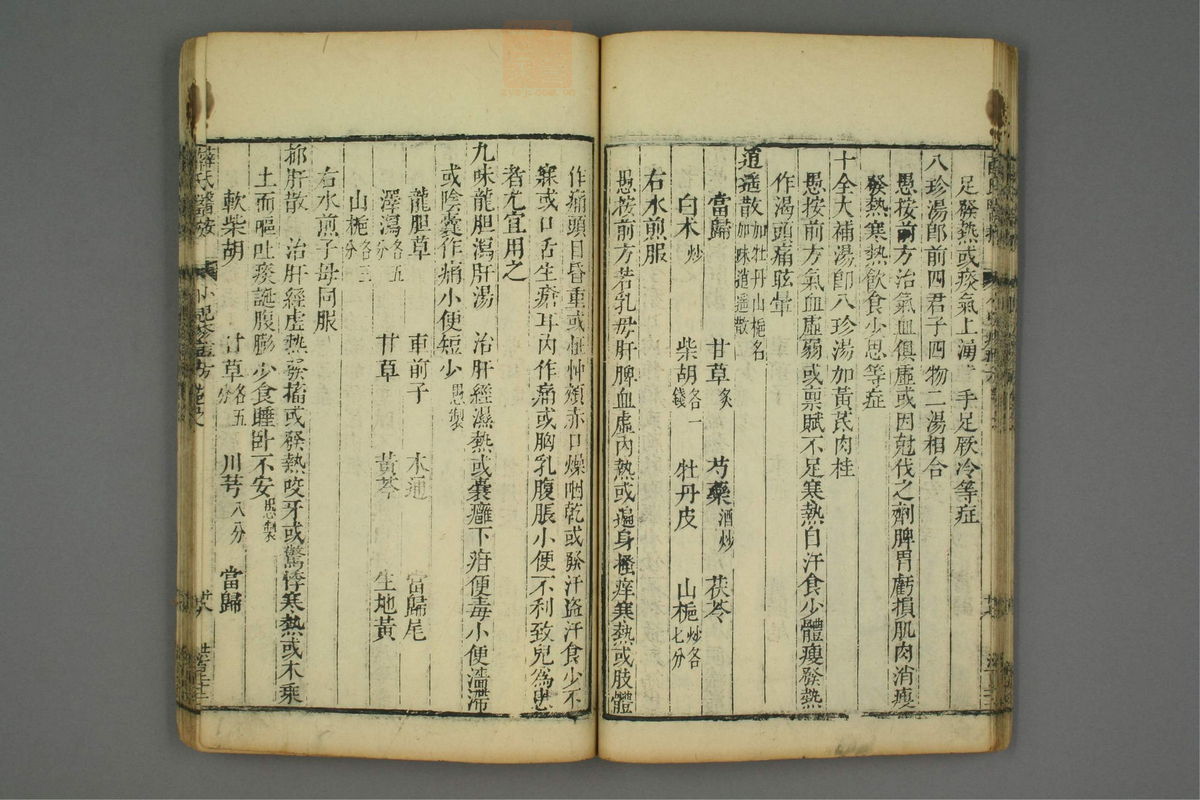 足發熱或痰氣上湧 手足厥冷等症
八珍湯卽前四君子四物二湯相合
愚按前方治氣血俱虛或因尅伐之劑脾胃虧損肌肉消瘦
發熱寒熱飲食少思等症
十全大補湯卽八珍湯加黃芪肉桂
愚按前方氣血虛弱或禀賦不足寒熱自汗食少體瘦發熱
作渴頭痛眩暈
逍遥散加牡丹山梔名加味逍遥散
當歸 甘草炙 芍藥酒炒 茯苓
白术炒 柴胡各一錢 牡丹皮 山梔炒各七分
右水煎服
愚按前方若乳母肝脾血虛內熱或遍身搔痒寒熱或肢體
作痛頭目昏重或怔忡頰赤口燥咽乾或發汗盗汗食少不
寐或口舌生瘡耳內作痛或胸乳腹脹小便不利致兒為患
者尤宜用之
九味龍胆瀉肝湯 治肝經濕熱或囊癰下疳便毒小便濇滯
或陰囊作痛小便短少愚製
龍胆草 車前子 木通 當歸尾
澤瀉各五分 甘草 黃芩 生地黃
山梔各三分
右水煎子母同服
抑肝散 治肝經虛熱發搐或發熱咬牙或驚悸寒熱或木乘
土而嘔吐痰涎腹膨少食睡卧不安愚製
軟柴胡 甘草各五分 川芎八分 當歸
薛氏醫按